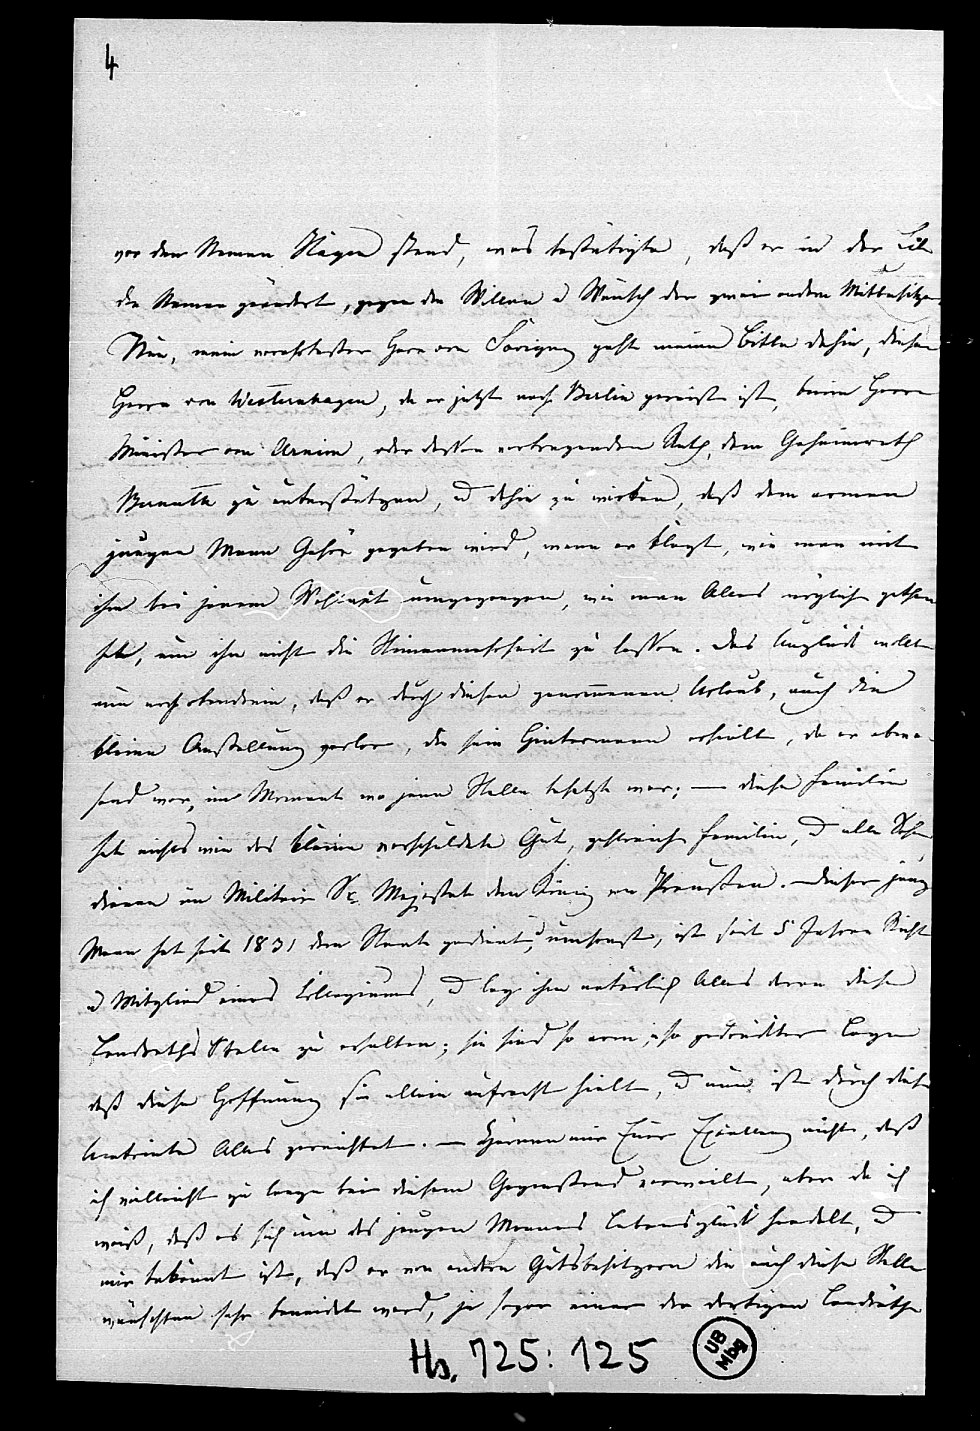 4
vor dem Namen Hagen stand, was bestätigte, daß er in der
den Namen geändert, gegen den Willen u Wunsch der zwei andern Mitbesitzer.
Nun, mein verehrtester Herr von Savigny geht meine Bitte dahin, diesen
Herrn von Westernhagen, da er jetzt nach Berlin gereist ist, beim Herrn
Minister von Arnim, oder dessen vortragenden Rath, dem Geheimrath
zu unterstützen, u dahin zu wirken, daß dem armen
jungen Mann Gehör gegeben wird, wenn er klagt, wie man mit
ihm bei jenem umgegangen, wie man Alles mögliche gethan
hat, um ihn nicht die Stimmenmehrheit zu lassen. Das Unglück wollte
nun noch obendrein, daß er durch diesen genommenen Urlaub, auch die
kleine Anstellung verlor, die sein Hintermann erhielt, da er abwe-
send war, im Moment wo jene Stelle besetzt war; — diese Familie
hat nichts wie das kleine verschuldete Gut, zahlreiche Familie, u alle Söhne
dienen im Militair Sr. Majestät dem König von Preußen. — dieser junge
Mann hat seit 1831 dem Staate gedient, umsonst, ist seit 5 Jahren
u Mitglied eines Collegiums, u lag ihm natürlich Alles daran diese
Landraths Stelle zu erhalten; sie sind so arm, in so gedrückter Lage
daß diese Hoffnung sie allein aufrecht hielt, u nun ist durch diese
Alles vernichtet. — Zürnen mir Euer Excellenz nicht, daß
ich vielleicht zu lange bei diesem Gegenstand verweilt, aber da ich
weiß, daß es sich um des jungen Mannes Lebensglück handelt, u
mir bekannt ist, daß er von andern Gutsbesitzern die auch diese Stelle
wünschten sehr beneidet ward, ja sogar einer der dortigen Landräthe
Hs. 725: 125
UB
Mbg